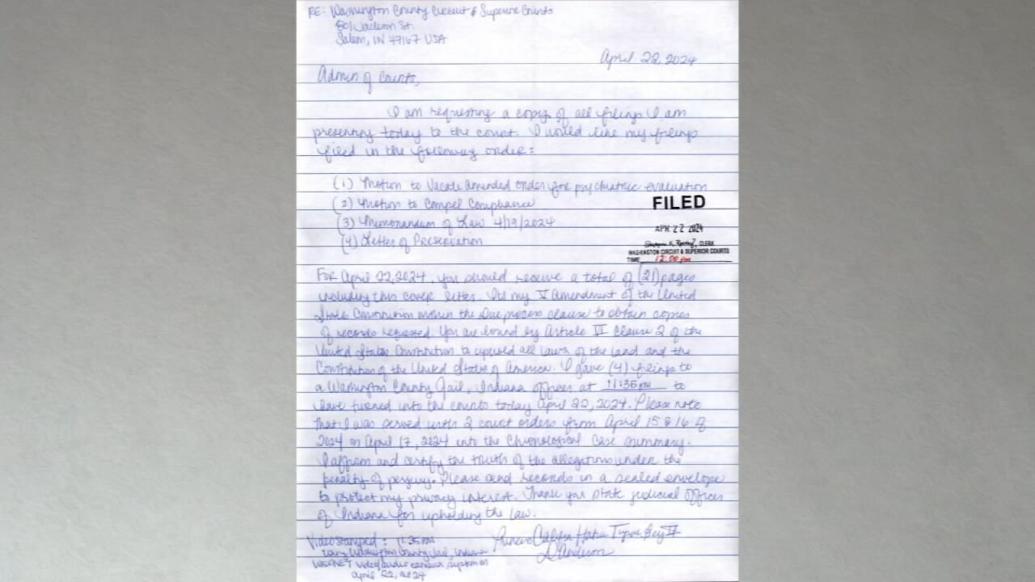 RE: Washington County Circuit & Superior Courts
Salem, IN 47167 USA
April 22, 2024
Admin of Courts,
I am requesting a copy of all filings I am
presenting today to the court. I would like my filings
filed in the following order:
(1) Motion to Vacate Amended Order for psychiatric evaluation
(2) Motion to Compel Compliance
(3) Memorandum of Law 4/19/2024
(4) Letter of Preservation
FILED
APR 22 2024
CLERK
WASHINGTON CIRCUIT & SUPERIOR COURTS
TIME 12:00 pm
For April 22, 2024, you should receive a total of (21) pages
including this cover letter. Its my V Amendment of the United
State Constitution within the Due process clause to obtain copies
of records requested. You are bound by Article VI Clause 2 of the
United States Constitution to uphold all laws of the land and the
Constitution of the United States of America. I gave (4) filings to
a Washington County Jail, Indiana officer at 11:35 to
have turned into the courts today April 22, 2024. Please note
that I was served with 2 court orders from April 15 & 16 of
2024 on April 17, 2024 into the Chronological Case Summary.
I affirm and certify the truth of the allegations under the
penalty of perjury. Please send records in a sealed envelope
to protect my privacy interest. Thank you state judicial officers
of Indiana for upholding the law.
Video Stamped: 11:35
Washington County Jail, Indiana
video/audio camera system on
April 22, 2024